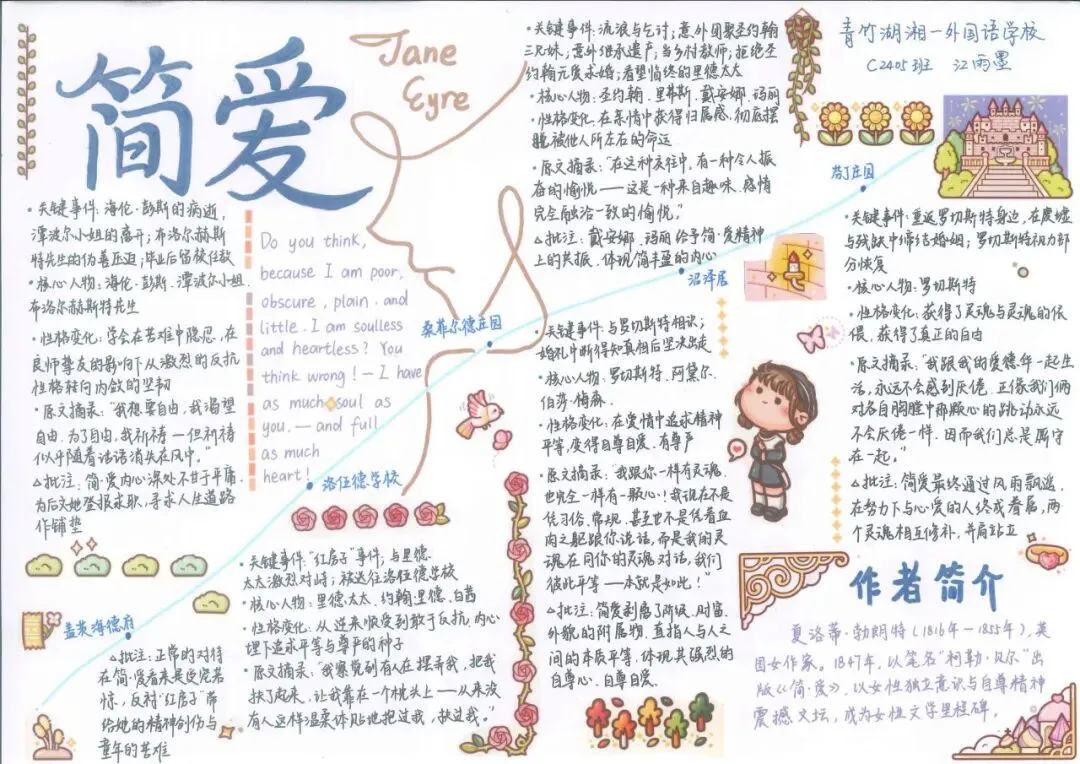 简爱
Jane
Eyre
青竹湖湘一外国语学校
C2405班 江雨墨
·关键事件:海伦·彭斯的病逝,
潭波尔小姐的离开;布洛尔赫斯
特先生的伪善压迫;毕业后留校任教
·核心人物:海伦·彭斯.潭波尔小姐.
布洛尔赫斯特先生
·性格变化:学会在苦难中隐忍,在
良师挚友的影响下从激烈的反抗
性格转向内敛的坚韧
·原文摘录:“我想要自由,我渴望
自由.为了自由,我祈祷一但祈祷
似乎随着话语消失在风中。”
△批注:简·爱内心深处不甘于平庸.
为后文她登报求职,寻求人生道路
作铺垫
Do you think,
because I am poor,
obscure, plain. and
little. I am soulless
and heartless? You
think wrong! — I have
as much soul as
you. — and full
as much
heart!
洛伍德学校
·关键事件:流浪与乞讨;意外团聚圣约翰
三兄妹;意外继承遗产;当乡村教师;拒绝圣
约翰无爱求婚;看望临终的里德太太
·核心人物:圣约翰·里弗斯.戴安娜.玛丽
·性格变化:在亲情中获得归属感.彻底摆
脱被他人所左右的命运
·原文摘录:“在这种交往中,有一种令人振
奋的愉悦——这是一种来自趣味.感情
完全融洽一致的愉悦。”
△批注:戴安娜.玛丽给予简·爱精神
上的共振.体现简丰盈的内心
沼泽居
桑菲尔德庄园
·关键事件:与罗切斯特相识;
婚礼中断得知真相后坚决出走
·核心人物:罗切斯特.阿黛尔.
伯莎·梅森
·性格变化:在爱情中追求精神
平等,变得自尊自爱.有尊严
·原文摘录:“我跟你一样有灵魂,
也完全一样有一颗心!我现在不是
凭习俗,常规.甚至也不是凭着血
肉之躯跟你说话,而是我的灵
魂在同你的灵魂对话,我们
彼此平等——本就是如此!”
△批注:简爱剥离了阶级.财富.
外貌的附属物.直指人与人之
间的本质平等,体现其强烈的
自尊心.自尊自爱.
芬丁庄园
·关键事件:重返罗切斯特身边,在废墟
与残缺中缔结婚姻;罗切斯特视力部
分恢复
·核心人物:罗切斯特
·性格变化:获得了灵魂与灵魂的依
偎.获得了真正的自由
·原文摘录:“我跟我的爱德华一起生
活,永远不会感到厌倦.正像我们俩
对各自胸膛中那颗心的跳动永远
不会厌倦一样.因而我们总是厮守
在一起。”
△批注:简爱最终通过风雨飘遥,
在努力下与心爱的人终成眷属,两
个灵魂相互修补,并肩站立
盖茨海德府
·关键事件:“红房子”事件;与里德
太太激烈对峙;被送往洛伍德学校
·核心人物:里德太太.约翰·里德.白茜
·性格变化:从逆来顺受到敢于反抗,内心
埋下追求平等与尊严的种子
·原文摘录:“我察觉到有人在摆弄我,把我
扶了起来,让我靠在一个枕头上——从来没
有人这样温柔体贴地抱过我,扶过我。”
△批注:正常的对待
在简·爱看来是受宠若
惊,反衬“红房子”带
给她的精神创伤与
童年的苦难
作者简介
夏洛蒂·勃朗特(1816年—1855年),英
国女作家。1847年,以笔名“柯勒·贝尔”出
版《简·爱》,以女性独立意识与自尊精神
震撼文坛,成为女性文学里程碑。